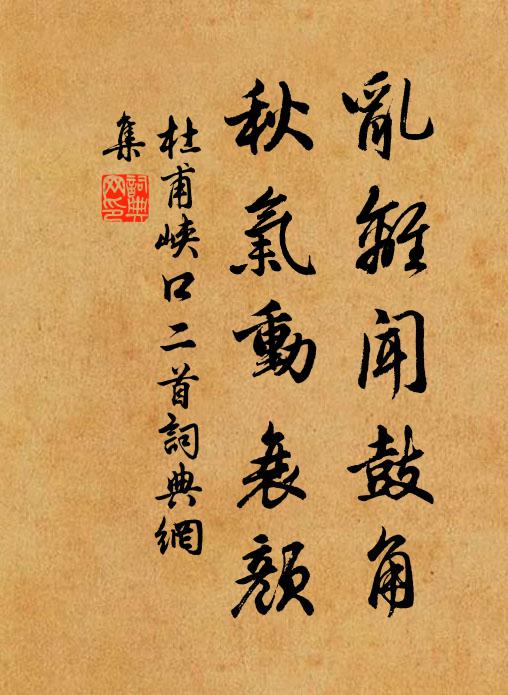 亂離聞鼓角
秋氣動衰顏
杜甫峽口二首詞典網
集
詞典網印